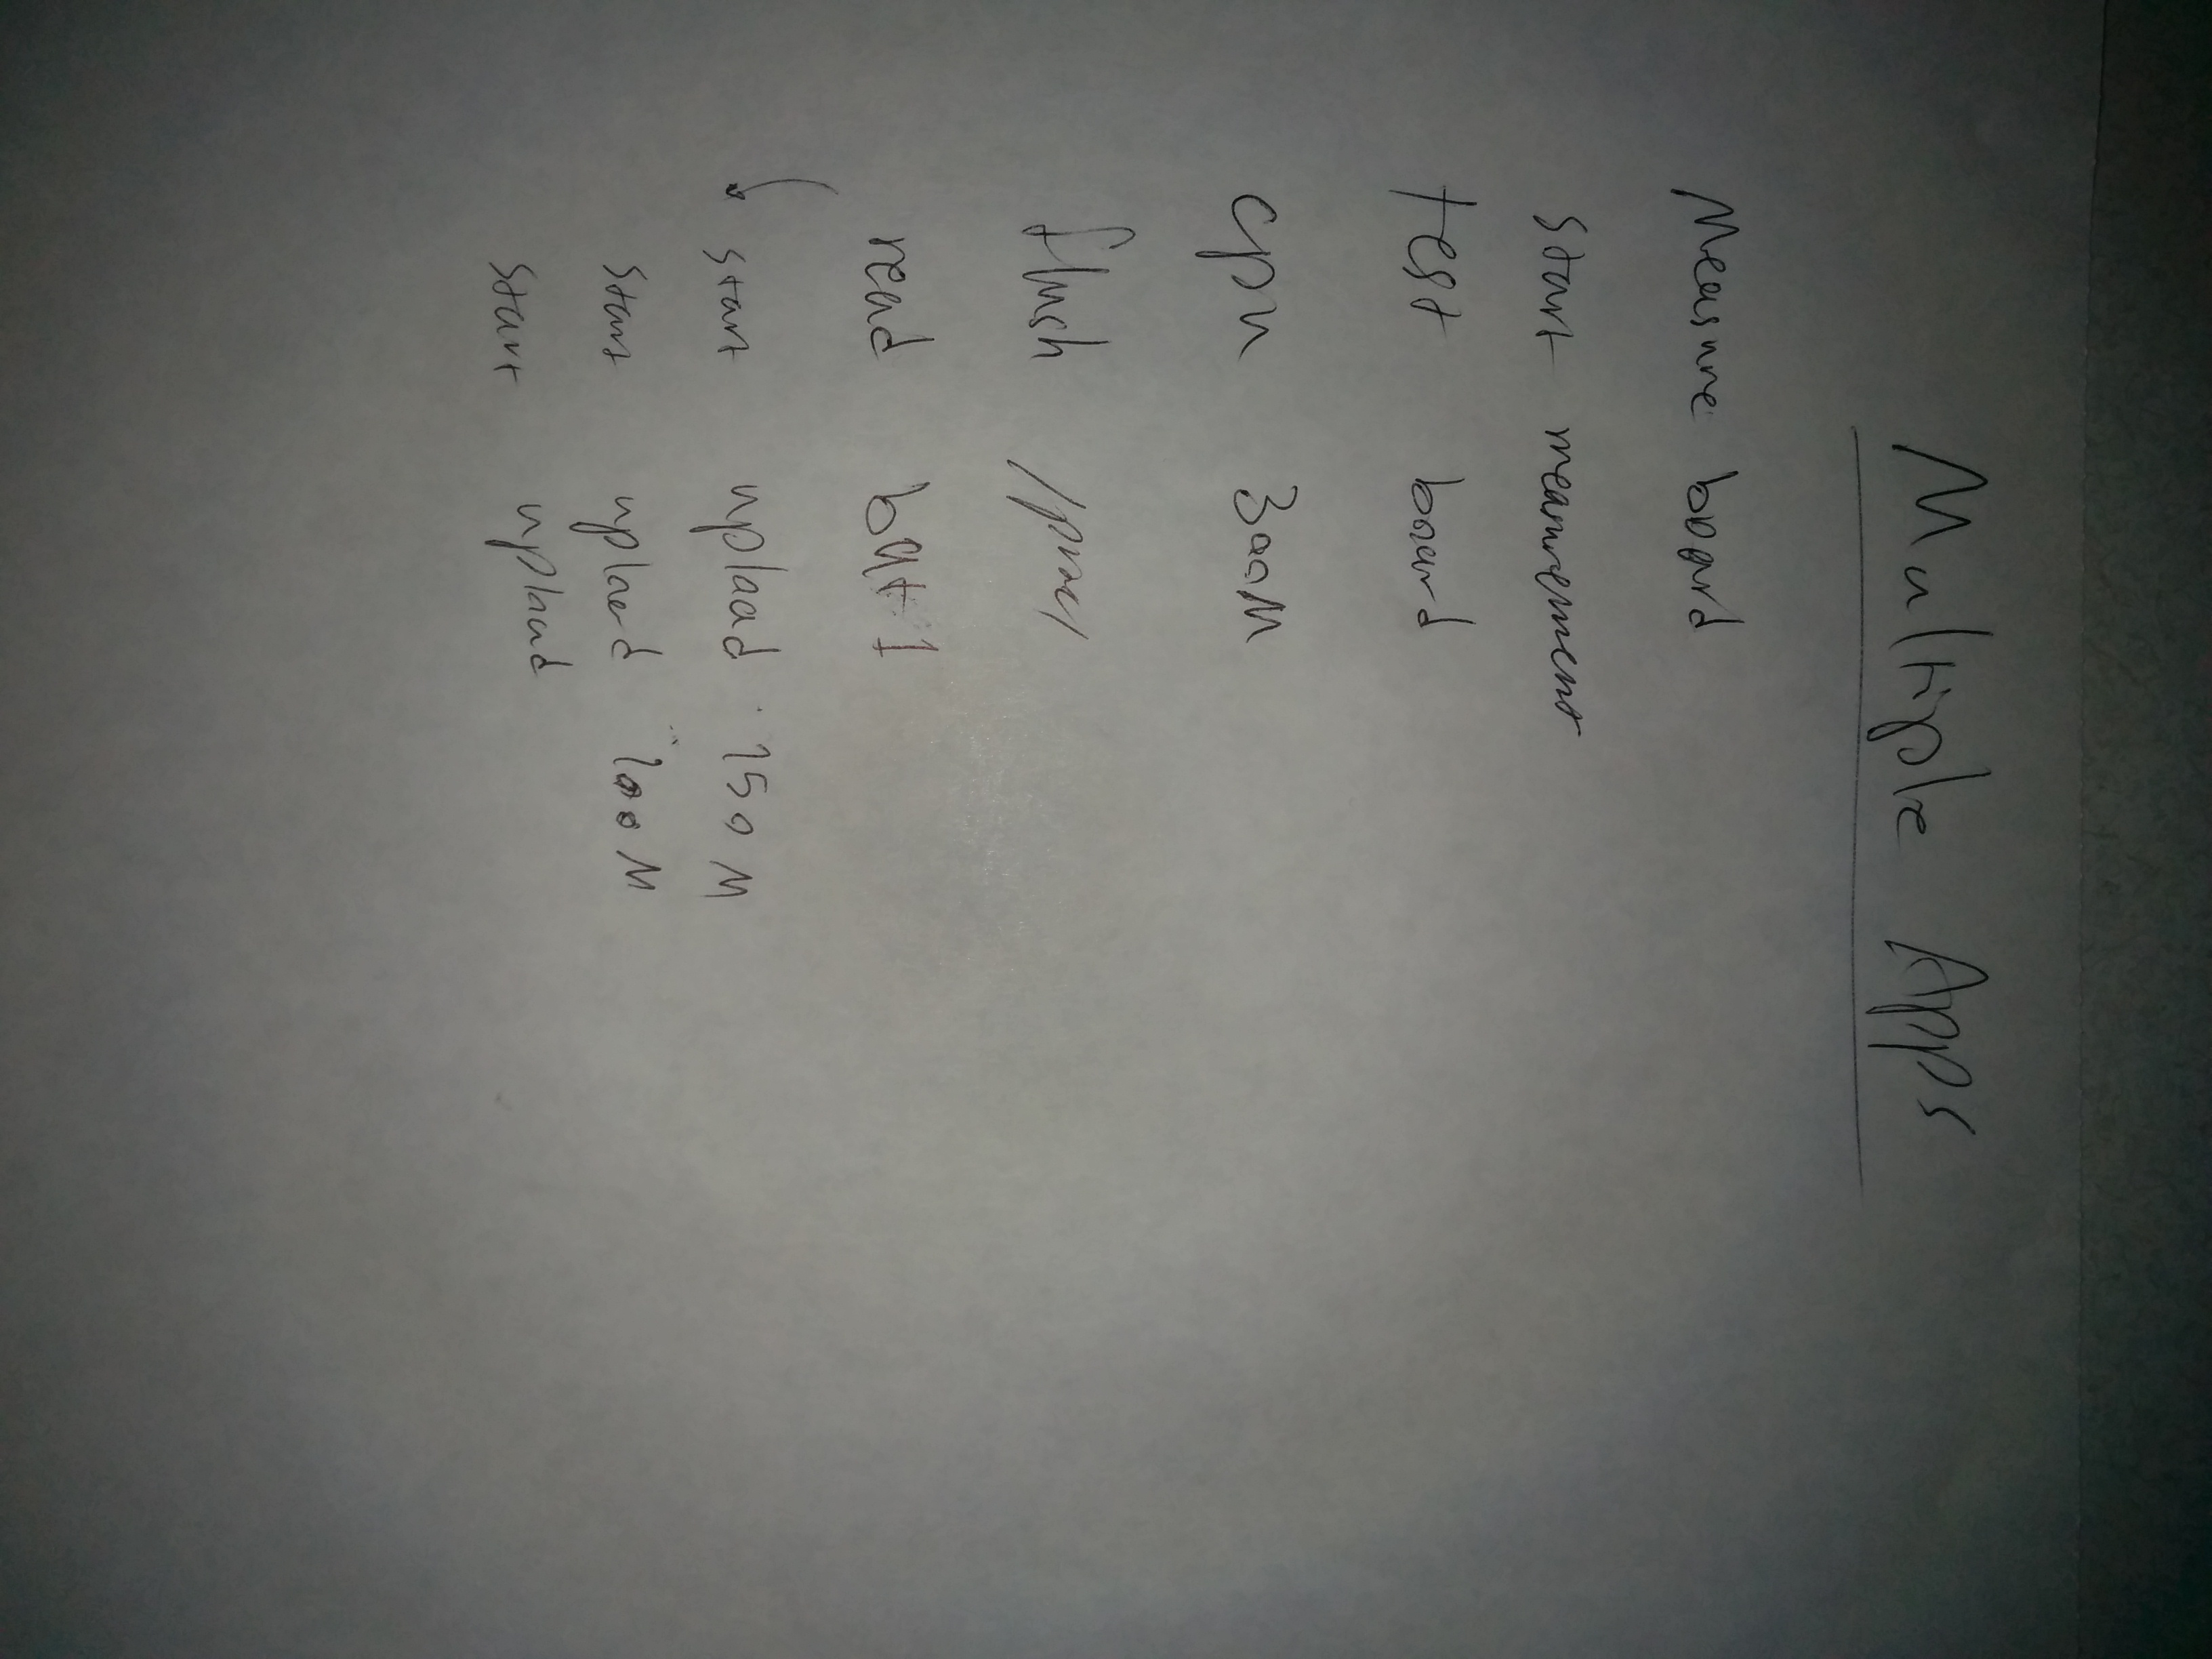 Multiple Apps
Measure board
Start measurement
test board
cpu 300M
flush /proc/
read bat1
start upload 150M
start upload 200M
start upload